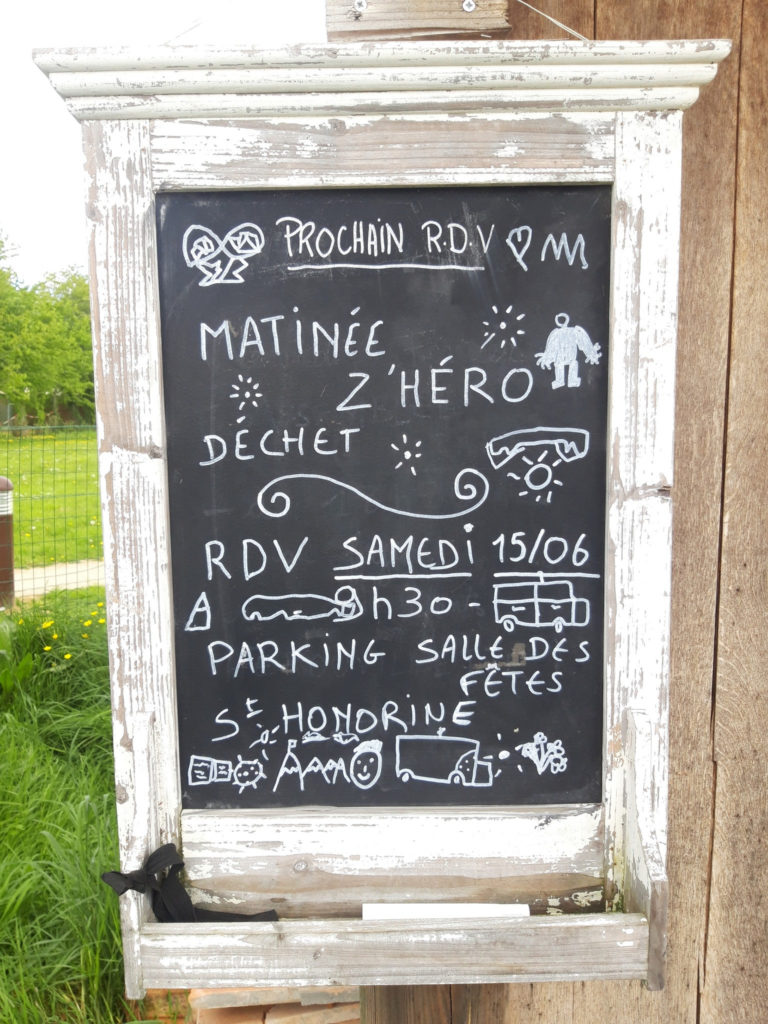 PROCHAIN R.D.V
MATINÉE
Z'HÉRO
DÉCHET
RDV SAMEDI 15/06
h30 -
PARKING SALLE DES
FÊTES
ST HONORINE